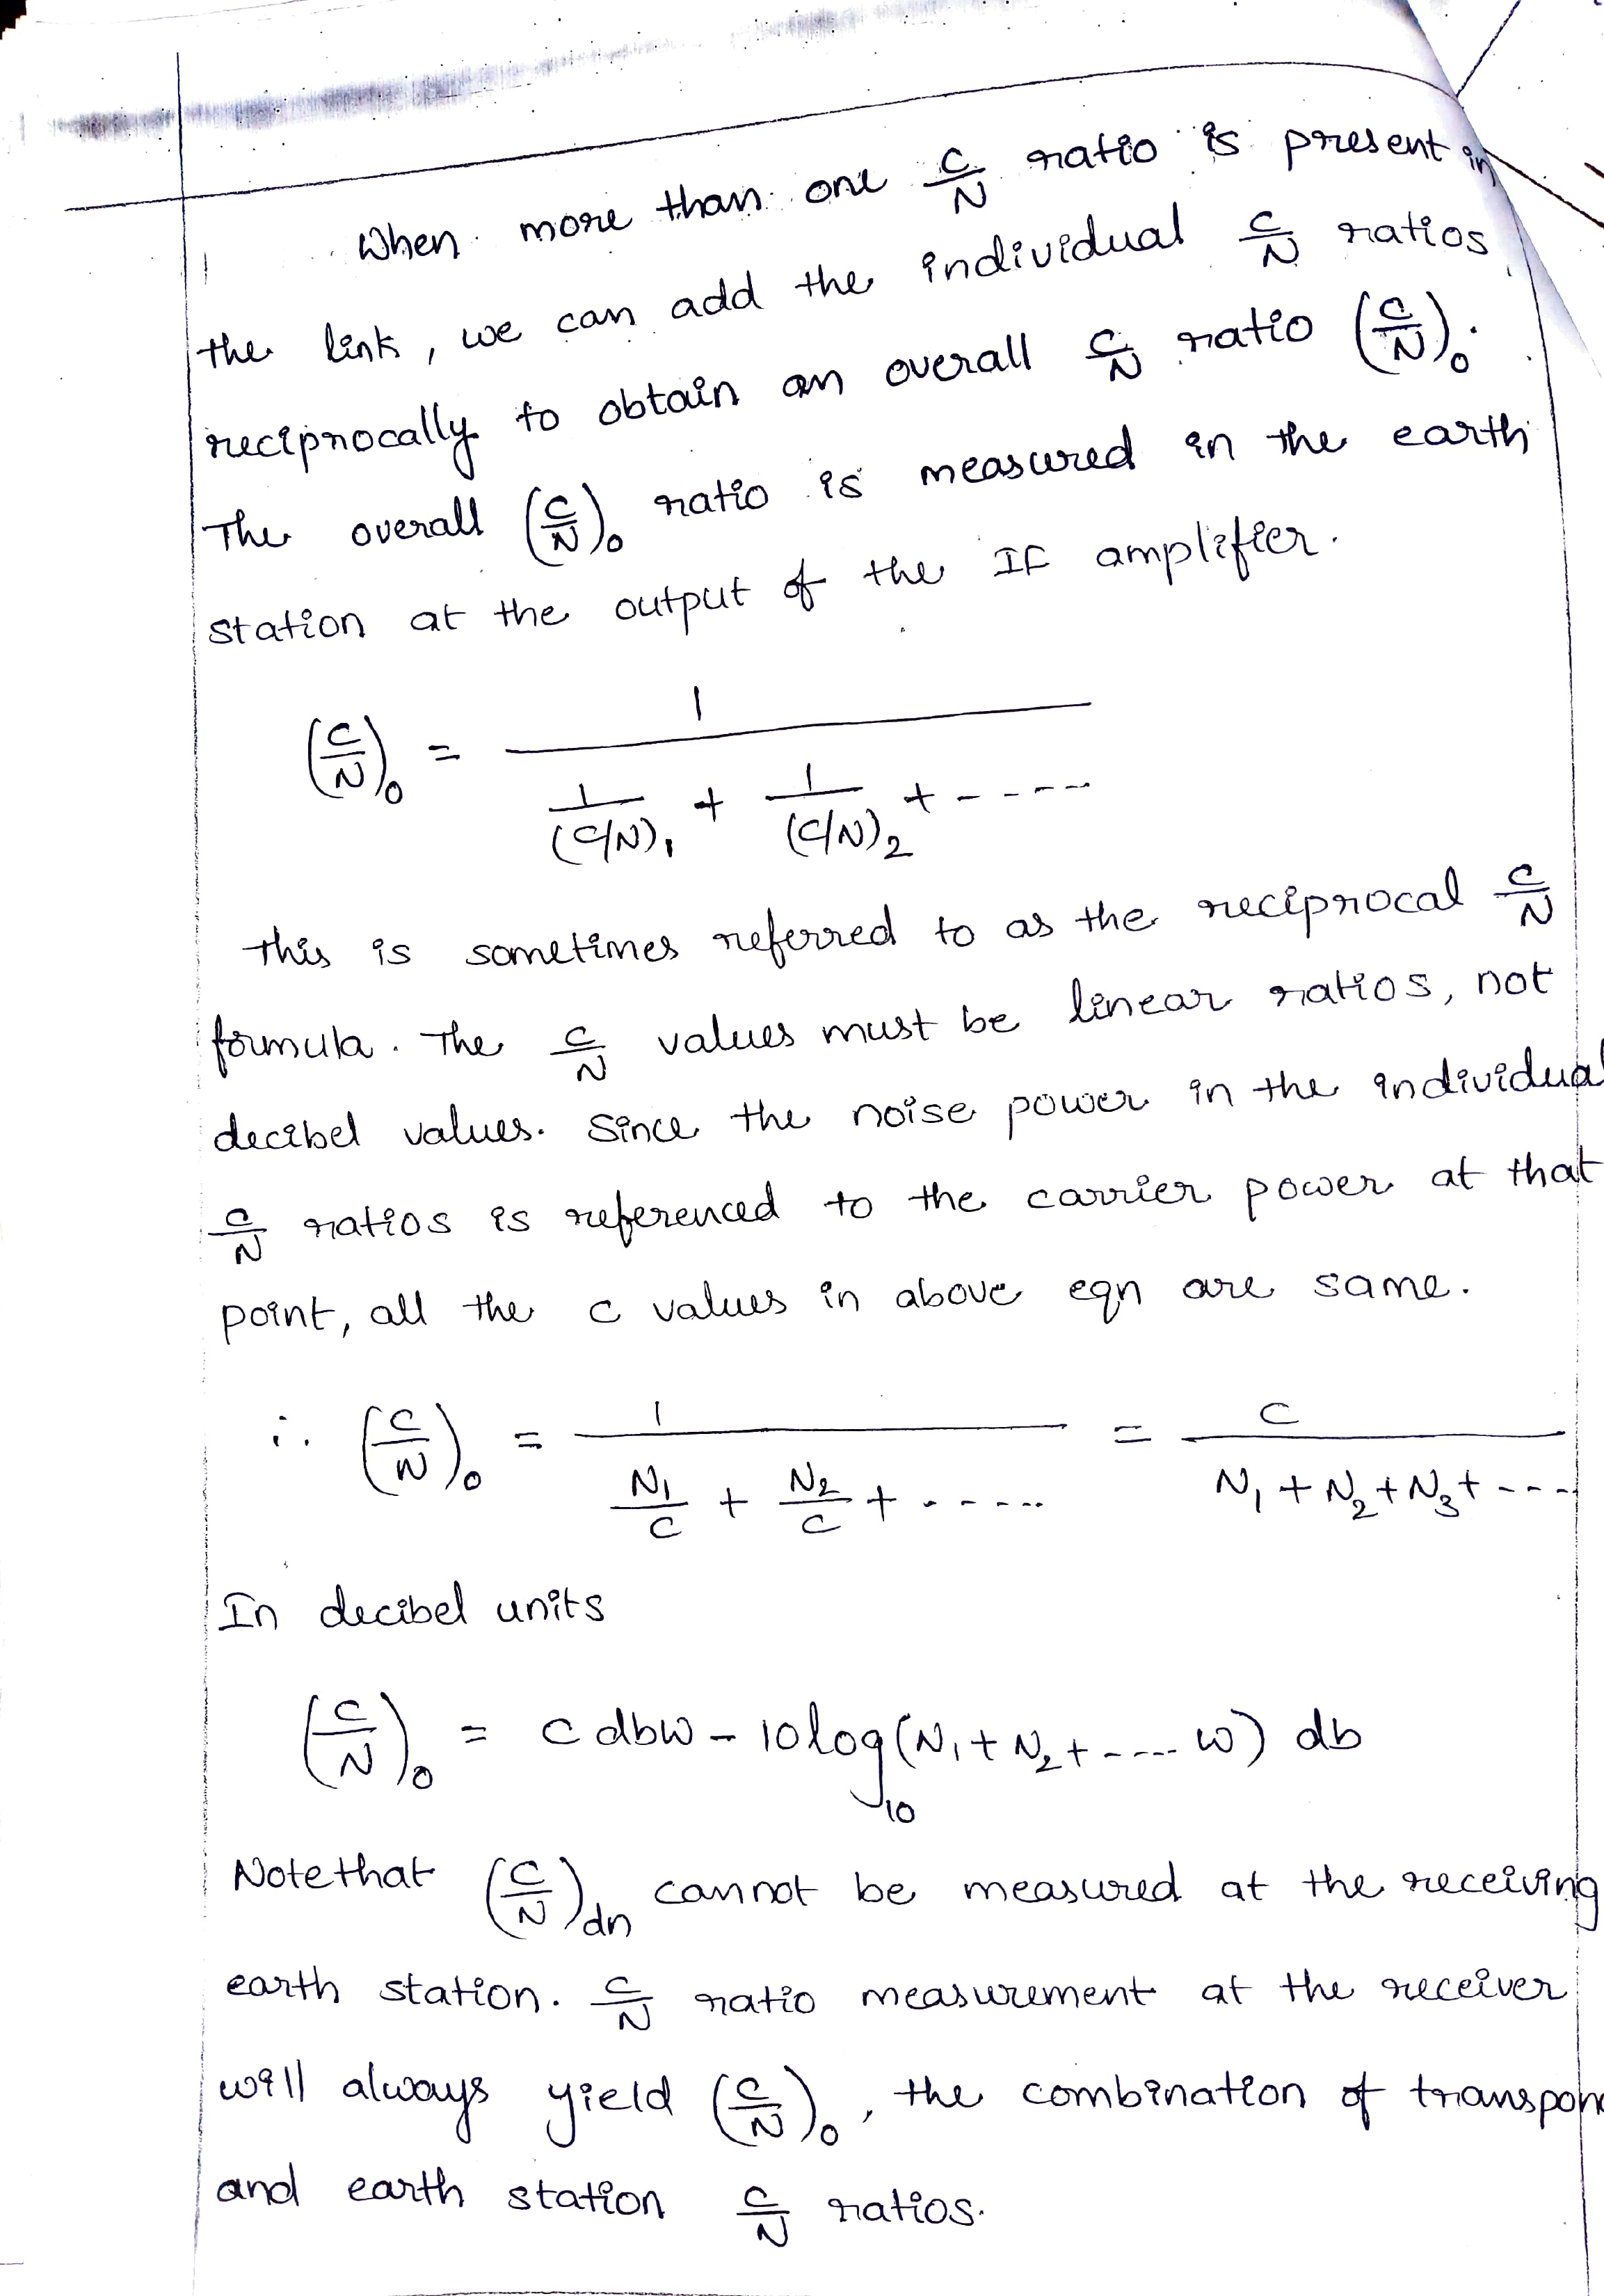 When more than one C/N ratio is present in
the link, we can add the individual C/N ratios
reciprocally to obtain an overall C/N ratio (C/N)₀.
The overall (C/N)₀ ratio is measured in the earth
station at the output of the IF amplifier.
(C/N)₀ = 1 / (1/(C/N)₁ + 1/(C/N)₂ + -----)
This is sometimes referred to as the reciprocal C/N
formula. The C/N values must be linear ratios, not
decibel values. Since the noise power in the individual
C/N ratios is referenced to the carrier power at that
point, all the C values in above eqn are same.
∴ (C/N)₀ = 1 / (N₁/C + N₂/C + -----) = C / (N₁ + N₂ + N₃ + ----)
In decibel units
(C/N)₀ = C dbw - 10 log₁₀ (N₁ + N₂ + ---- W) db
Note that (C/N)dn cannot be measured at the receiving
earth station. C/N ratio measurement at the receiver
will always yield (C/N)₀, the combination of transpon
and earth station C/N ratios.